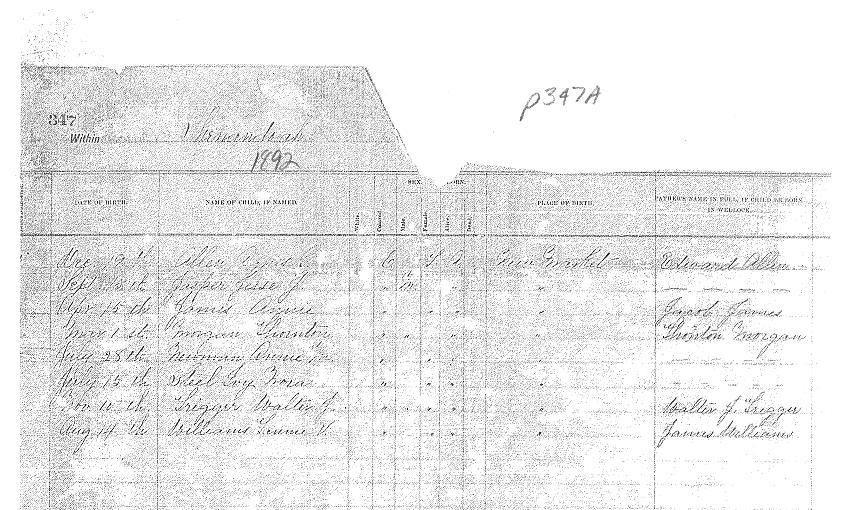 p347A
347
Within Shenandoah
1892
SEX.
DATE OF BIRTH. NAME OF CHILD, IF NAMED. White. Colored. Male. Female. Alive. Dead. PLACE OF BIRTH. FATHER'S NAME IN FULL, IF CHILD BE BORN
IN WEDLOCK.
19th Allen C New Market Edward Allen
Sept 18th Jasper Jesse J. " m " "
Apr 15th James Annie " " " " Jacob James
1st. Morgan Thornton " " " " Thornton Morgan
28th Newman Annie " " " "
July 15th Steel Ivy " " " "
Nov 10th Trigger Walter J. " " " " Walter J. Trigger
Aug 14th Williams V. " " " " James Williams